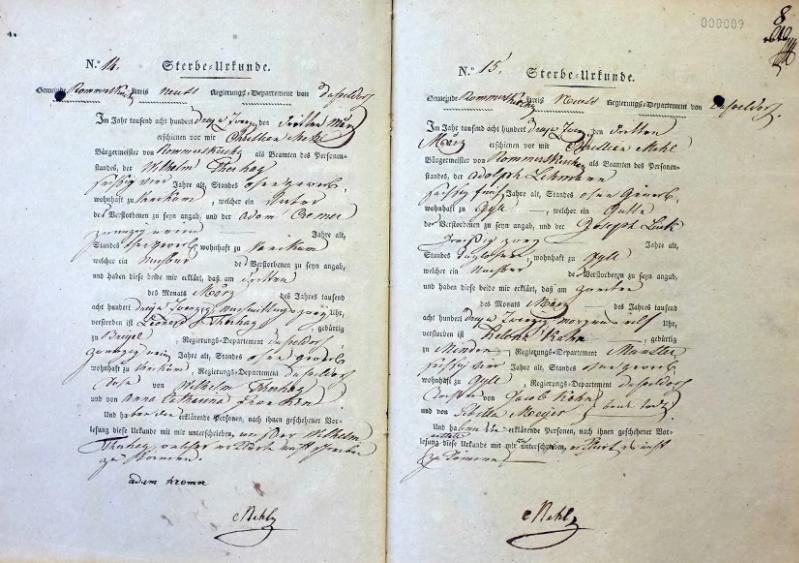 N.º 14. Sterbe-Urkunde.
Gemeinde Rommerskirchen Kreis Neuss Regierungs-Departement von Düsseldorf
Im Jahr tausend acht hundert drey u Zwanzig den dritten März
erschienen vor mir Christian Mehl
Bürgermeister von Rommerskirchen als Beamten des Personen-
standes, der Wilhelm
sechszig vier Jahre alt, Standes ohne Gewerb
wohnhaft zu , welcher ein Vater
de Verstorbenen zu seyn angab, und der Adam
zwanzig neun Jahre alt,
Standes ohne Gewerb wohnhaft zu
welcher ein Nachbar de Verstorbenen zu seyn angab,
und haben diese beide mir erklärt, daß am dritten
des Monats März des Jahres tausend
acht hundert drey u Zwanzig Nachmittags zwey Uhr,
verstorben ist , gebürtig
zu , Regierungs-Departement Düsseldorf
zwanzig neun Jahre alt, Standes ohne Gewerb
wohnhaft zu , Regierungs-Departement Düsseldorf
Sohn von Wilhelm
und von Anna Catharina
Und haben die erklärende Personen, nach ihnen geschehener Vor-
lesung diese Urkunde mit mir unterschrieben, Wilhelm
welcher erklärte nicht schreiben
zu können
adam
Mehl
000009
8
N.º 15. Sterbe-Urkunde.
Gemeinde Rommerskirchen Kreis Neuss Regierungs-Departement von Düsseldorf.
Im Jahr tausend acht hundert drey u Zwanzig den dritten
März erschienen vor mir Christian Mehl
Bürgermeister von Rommerskirchen als Beamten des Personen-
standes, der Adolph Lehmann
sechszig fünf Jahre alt, Standes ohne Gewerb,
wohnhaft zu , welcher ein Gatte
der Verstorbenen zu seyn angab, und der Joseph
dreißig zwey Jahre alt,
Standes Taglöhner, wohnhaft zu
welcher ein Nachbar der Verstorbenen zu seyn angab,
und haben diese beide mir erklärt, daß am zweiten
des Monats März des Jahres tausend
acht hundert drey u Zwanzig morgens elf Uhr,
verstorben ist Helena Kohn , gebürtig
zu Minden, Regierungs-Departement Münster
sechszig vier Jahre alt, Standes ohne Gewerb
wohnhaft zu , Regierungs-Departement Düsseldorf
Tochter von Jacob Kohn
und von Sibilla Meyer beide todt
Und haben die erklärende Personen, nach ihnen geschehener Vor-
lesung diese Urkunde mit mir unterschrieben,
Mehl